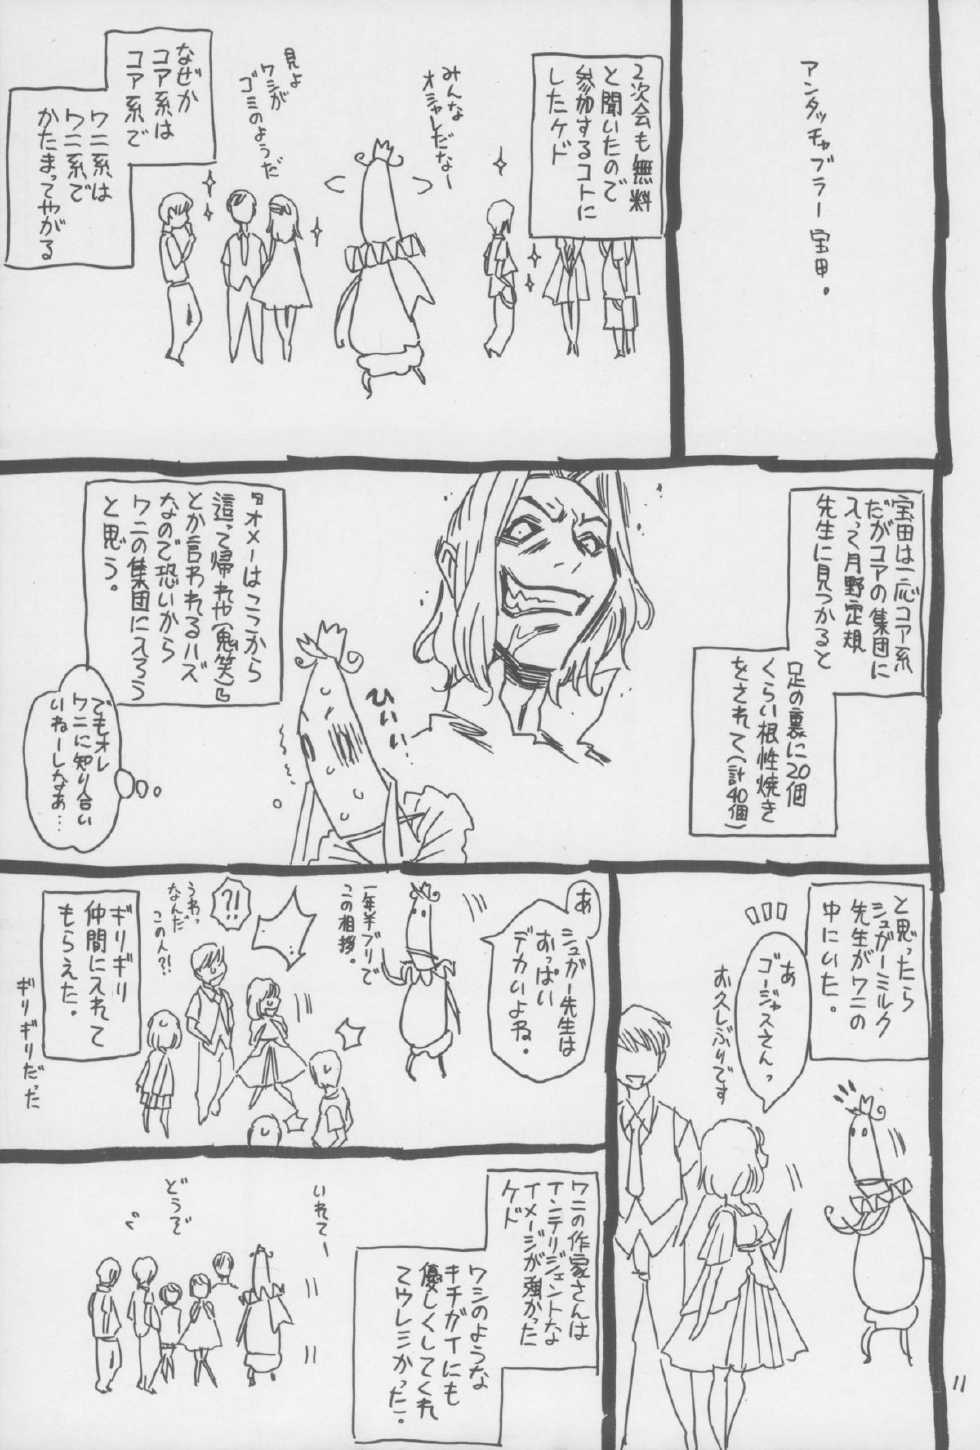 アンタッチャブラー宝田。
2次会も無料
と聞いたので
参加するコトに
したケド
みんな
オシャレだなー
見よ
ワシが
ゴミのようだ
なぜか
コア系は
コア系で
ワニ系は
ワニ系で
かたまってやがる
宝田は一応コア系
だがコアの集団に
入って月野定規
先生に見つかると
足の裏に20個
くらい根性焼き
をされて(計40個)
『オメーはここから
這って帰れや(鬼笑)』
とか言われるハズ
なので恐いから
ワニの集団に入ろう
と思う。
ひぃぃ!
でもオレ
ワニに知り合い
いねーしなぁ…
と思ったら
シュガーミルク
先生がワニの
中にいた。
あ
ゴージャスさんっ
お久しぶりです
あ
シュガー先生は
おっぱい
デカいよね。
一年半ブリで
この相撲。
?!
うわっ
なんだ
この人?!
ギリギリ
仲間に入れて
もらえた。
ギリギリだった
ワニの作家さんは
インテリジェントな
イメージが強かった
ケド
ワシのような
キチガイにも
優しくしてくれ
てウレシかった!
いれてー
どうで
11